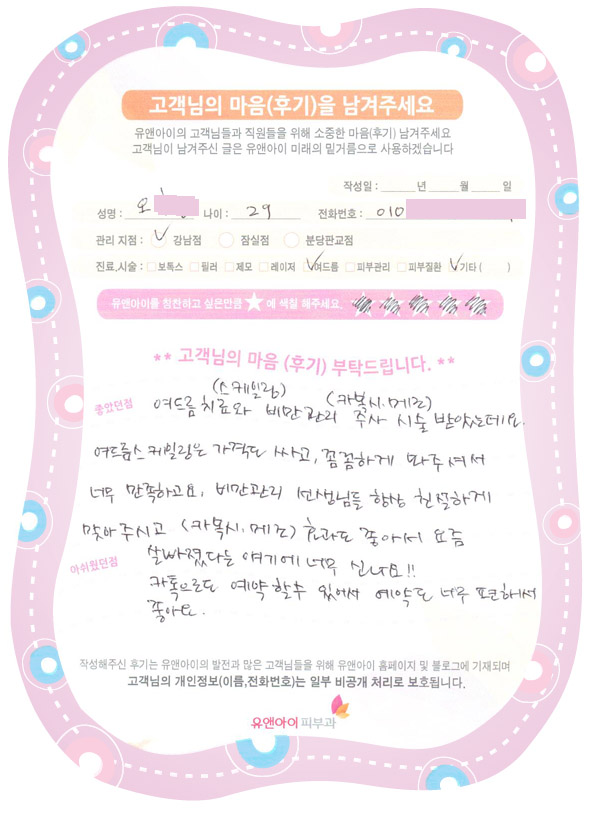 고객님의 마음(후기)을 남겨주세요
유앤아이의 고객님들과 직원들을 위해 소중한 마음(후기) 남겨주세요
고객님이 남겨주신 글은 유앤아이 미래의 밑거름으로 사용하겠습니다
작성일 : ______년 ______월 ______일
성명 : 오 나이 : 29 전화번호 : 010
관리 지점 : 강남점 잠실점 분당판교점
진료,시술 : 보톡스 필러 제모 레이저 여드름 피부관리 피부질환 기타 ( )
유앤아이를 칭찬하고 싶은만큼 ★ 에 색칠 해주세요.
** 고객님의 마음 (후기) 부탁드립니다. **
(스케일링) (카복시.메조)
좋았던점 여드름치료와 비만관리 주사 시술 받았는데요.
여드름스케일링은 가격도 싸고, 꼼꼼하게 짜주셔서
너무 만족하고요, 비만관리 선생님들 항상 친절하게
맞아주시고 (카복시.메조) 효과도 좋아서 요즘
아쉬웠던점 살빠졌다는 얘기에 너무 신나요!!
카톡으로도 예약할수 있어서 예약도 너무 편해서
좋아요.
작성해주신 후기는 유앤아이의 발전과 많은 고객님들을 위해 유앤아이 홈페이지 및 블로그에 기재되며
고객님의 개인정보(이름,전화번호)는 일부 비공개 처리로 보호됩니다.
유앤아이 피부과